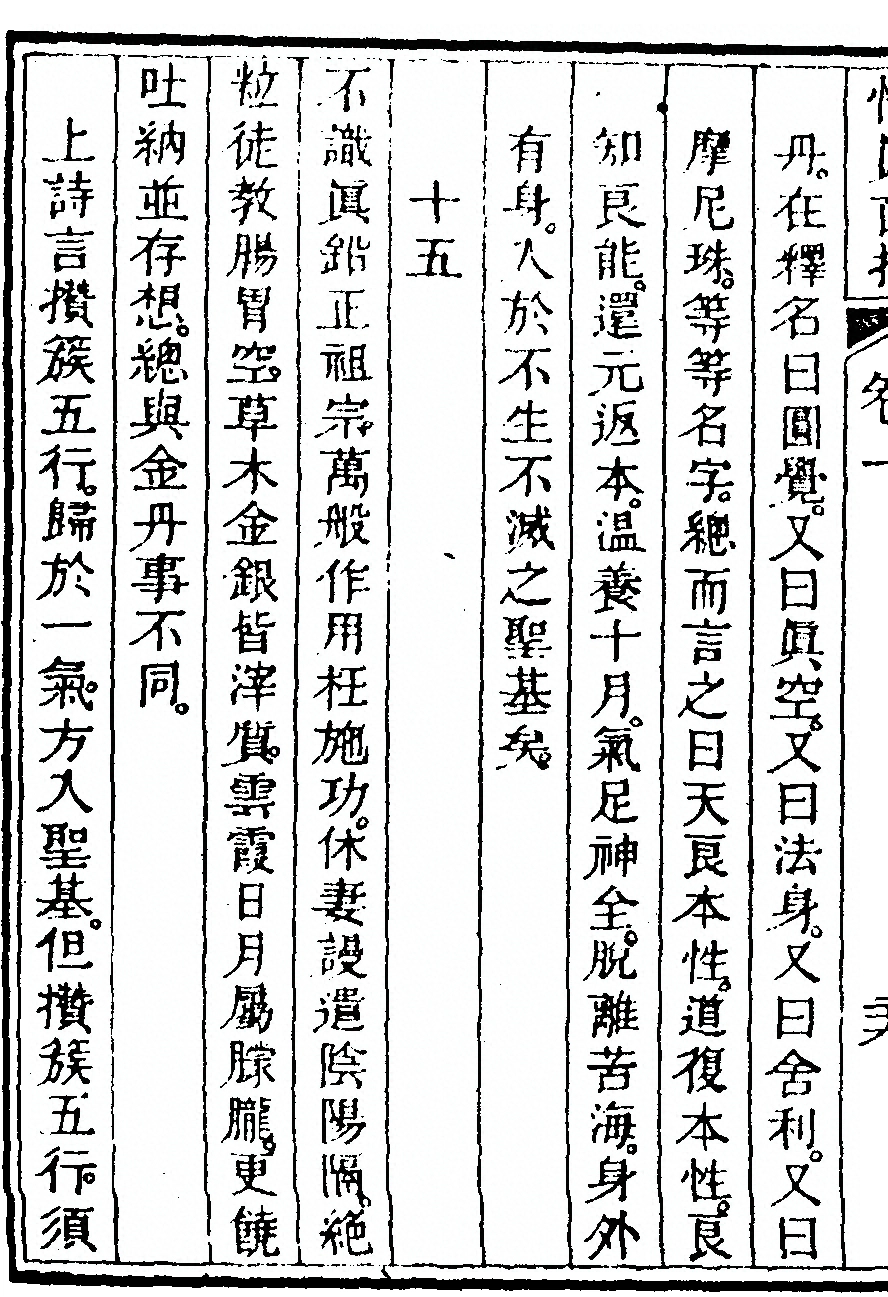 卷一
丹。在釋名曰圓覺。又曰眞空。又曰法身。又曰舍利。又曰
摩尼珠。等等名字。總而言之曰天良本性。道復本性。良
知良能。還元返本。溫養十月。氣足神全。脫離苦海。身外
有身。入於不生不滅之聖基矣。
十五
不識眞鉛正祖宗。萬般作用枉施功。休妻謾遣陰陽隔。絶
粒徒教腸胃空。草木金銀皆滓質。雲霞日月屬朦朧。更饒
吐納並存想。總與金丹事不同。
上詩言攢簇五行。歸於一氣。方入聖基。但攢簇五行。須